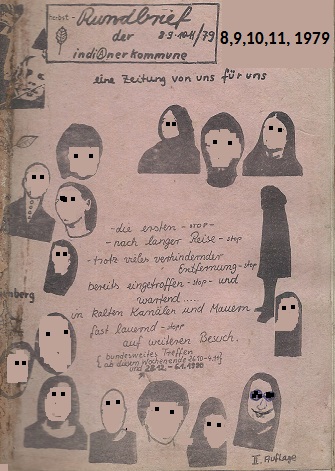 Herbst- Rundbrief
der 8·9·10·11/79
8,9,10,11, 1979
indi@nerkommune
eine Zeitung von uns für uns
-die ersten - STOP-
-nach langer Reise - stop
-trotz vieler verhindernder
Entfernung - stop
bereits eingetroffen - stop - und
wartend....
in kalten Kanälen und Mauern
fast lauernd - stop
auf weiteren Besuch.
{ bundesweites Treffen
ab diesem Wochenende 26.10-4.11 }
und 28.12. - 6.1.1980
enberg
II. Auflage